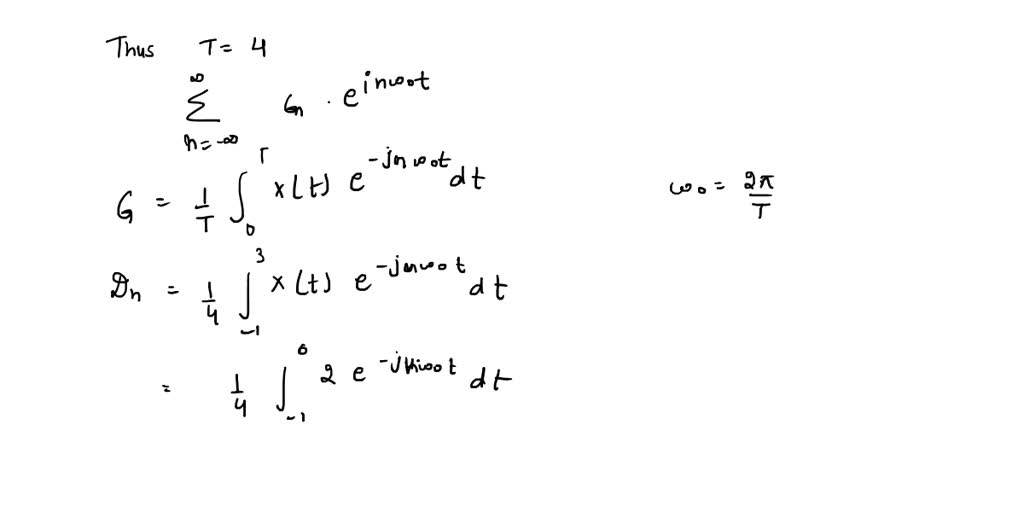 Thus T = 4
∞ ∑ n=-∞ Gn · e^{inω₀t}
G = 1/T ∫_0^T x(t) e^{-jnω₀t} dt
ω₀ = 2π/T
Dn = 1/4 ∫_{-1}^3 x(t) e^{-jnω₀t} dt
= 1/4 ∫_{-1}^0 2 e^{-jnω₀t} dt